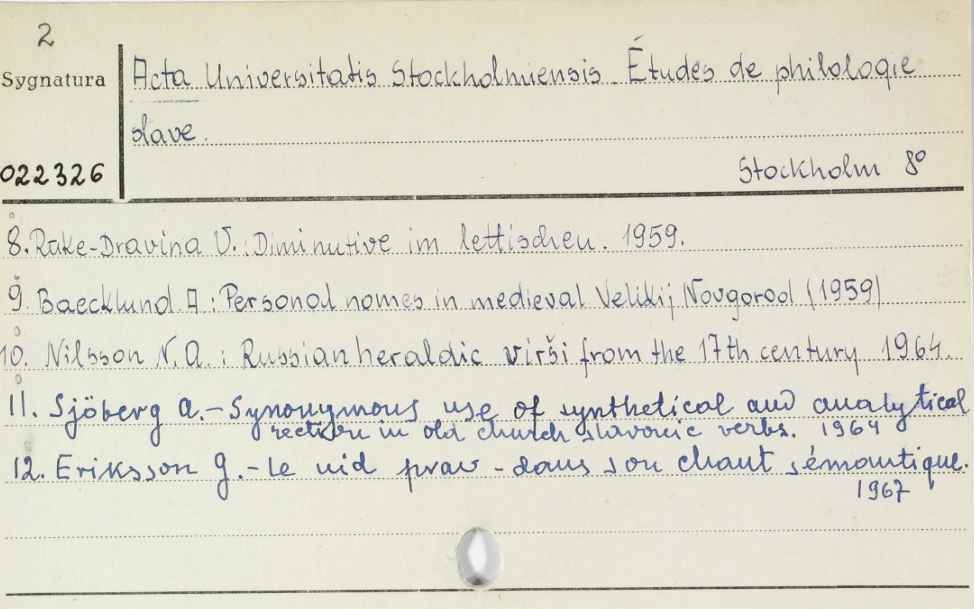 2
Sygnatura
Acta Universitatis Stockholmiensis. Études de philologie
slave.
022326
Stockholm 8°
8. Rūke-Dravina V.: Diminutive im lettischen. 1959.
9. Baecklund A: Personal names in medieval Velikij Novgorod (1959)
10. Nilsson N.A.: Russian heraldic virši from the 17th century 1964.
11. Sjöberg A. - Synonymous use of synthetical and analytical
rection in old church slavonic verbs. 1964
12. Eriksson G. - Le nid prav - dans son chaut sémantique.
1967